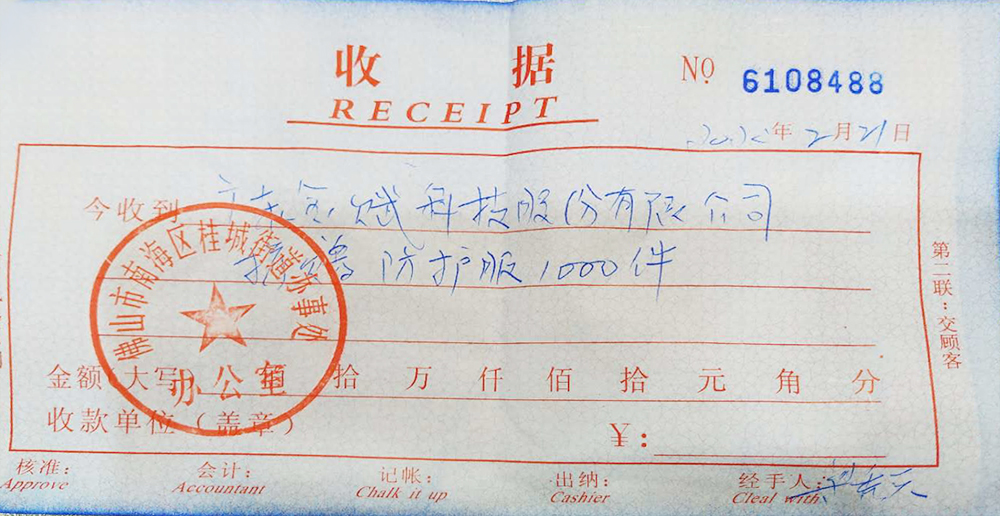 收 据
RECEIPT
№ 6108488
2020年2月21日
今收到 广东金赋科技股份有限公司
捐赠 防护服1000件
佛山市南海区桂城街道办事处
办公室
金额(大写) 佰 拾 万 仟 佰 拾 元 角 分
收款单位(盖章)
¥:
第二联:交顾客
核准: 会计: 记帐: 出纳: 经手人:
Approve Accountant Chalk it up Cashier Cleal with